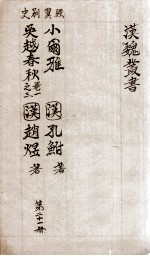 漢魏叢書
史別翼毆
小爾雅 漢 孔鮒 著
吳越春秋卷一之二 漢 趙煜 著
第二十一冊